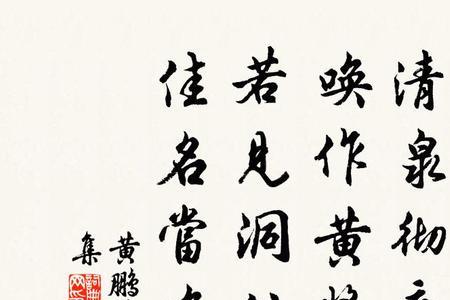 清泉彻
唤作黄
若见洞
佳名當
黄鹏
集